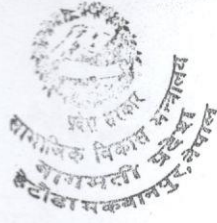 प्रदेश सरकार
सामाजिक विकास मन्त्रालय
बागमती प्रदेश
हेटौंडा मकवानपुर, नेपाल